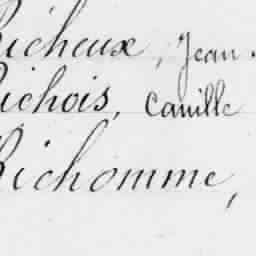 Richeux, Jean.
Richois, Camille
Richomme,